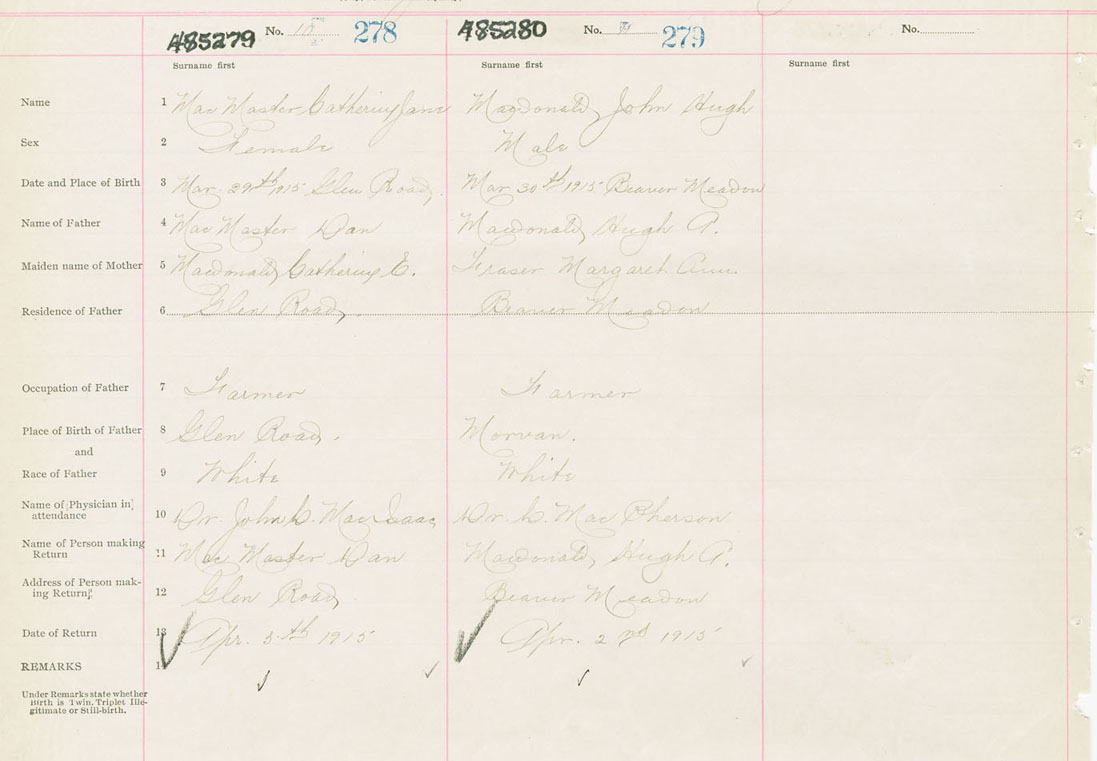 485279 No. 278 485280 No. 279 No.
Surname first Surname first Surname first
Name 1 MacMaster Catherine Jane Macdonald John Hugh
Sex 2 Female Male
Date and Place of Birth 3 Mar. 29th 1915 Glen Road, Mar 30th 1915 Beaver Meadow
Name of Father 4 MacMaster Dan Macdonald, Hugh A.
Maiden name of Mother 5 Macdonald, Catherine E. Fraser Margaret Ann.
Residence of Father 6 Glen Road, Beaver Meadow
Occupation of Father 7 Farmer Farmer
Place of Birth of Father 8 Glen Road. Morvan.
and
Race of Father 9 White White
Name of Physician in
attendance 10 Dr. John C. MacIsaac Dr. C. MacPherson
Name of Person making
Return 11 MacMaster Dan Macdonald, Hugh A.
Address of Person mak-
ing Return 12 Glen Road, Beaver Meadow
Date of Return 13 Apr. 5th 1915 Apr. 2nd 1915
REMARKS 14
Under Remarks state whether
Birth is Twin, Triplet Ille-
gitimate or Still-birth.